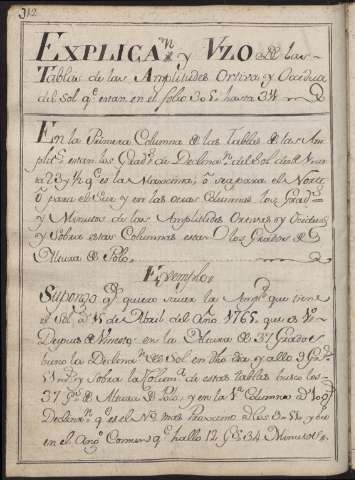 312
EXPLICAn y VZO de las
Tablas de las Amplitudes Ortiva y Occidua
del Sol qe estan en el folio 305 hasta 311
En la Primera Columna de las Tablas de las Am
plits estan los Grads de Declinn del Sol desde
23 y ½ qe es la Maxima, ò sea para el Norte,
ò para el Sur y en las otras Columnas los Grads
y Minutos de las Amplitudes Ortivas y Occiduas
y Sobre estas Columnas estan los Grados de
Altura de Polo.
Exemplo
Supongo qe quiero sacar la Ampd que tiene
el Sol à 15 de Abril del Año 1765 que es 1o
Depues de Viciesto en la Altura de 37 Grados
busco la Declinn del Sol en dho dia y allo 9 Grads
y Sobre la de estas tablas busco los
37 Gs de Altura de Polo, y en la 1a Columna de
Declinn qe es el No mas Proximo à los y
en el Ango Comun qe hallo 12 Gs 34 Minutos.